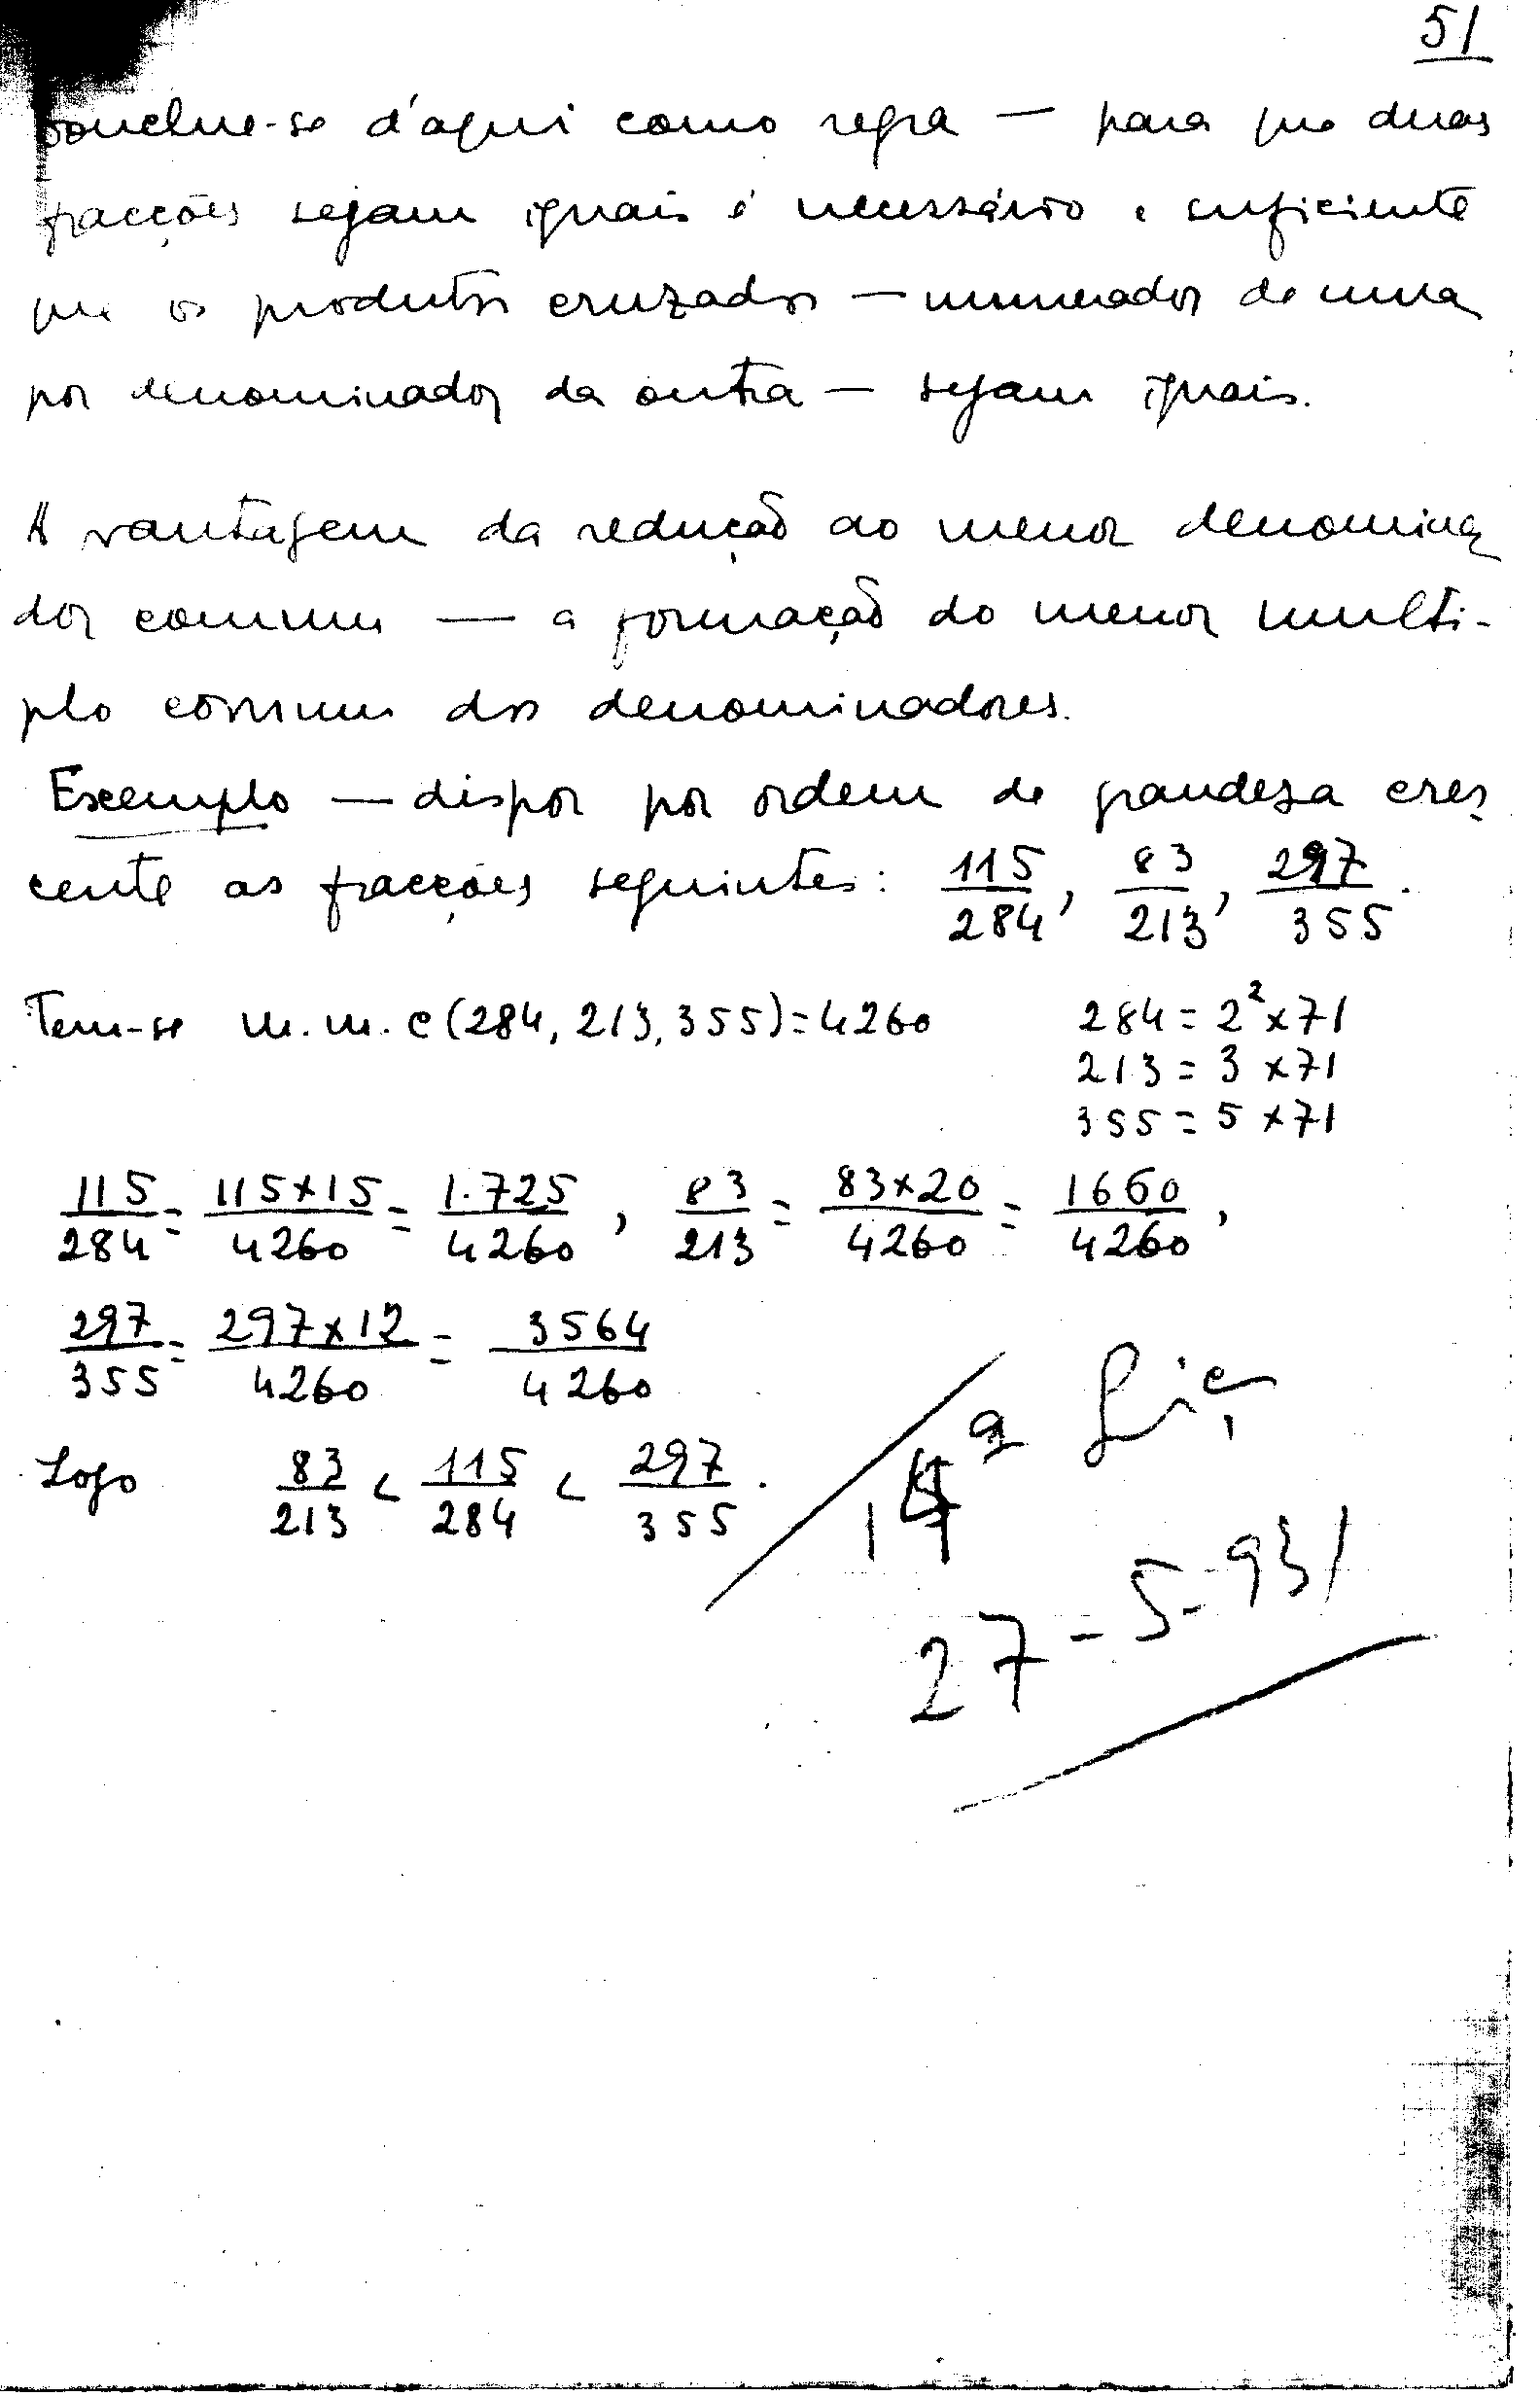 51
conclue-se d'aqui como regra — para que duas
fracções sejam iguais é necessário e suficiente
que os produtos cruzados — numerador de uma
por denominador da outra — sejam iguais.
A vantagem da redução ao menor denomina
dor comum — a formação do menor multi-
plo comum dos denominadores.
Exemplo — dispor por ordem de grandeza cres
cente as fracções seguintes: 115/284, 83/213, 297/355.
Tem-se m.m.c(284, 213, 355)=4260
284 = 2²×71
213 = 3 ×71
355 = 5 ×71
115/284 = 115×15/4260 = 1.725/4260, 83/213 = 83×20/4260 = 1660/4260,
297/355 = 297×12/4260 = 3564/4260
Logo 83/213 < 115/284 < 297/355.
14ª Liç
27-5-931